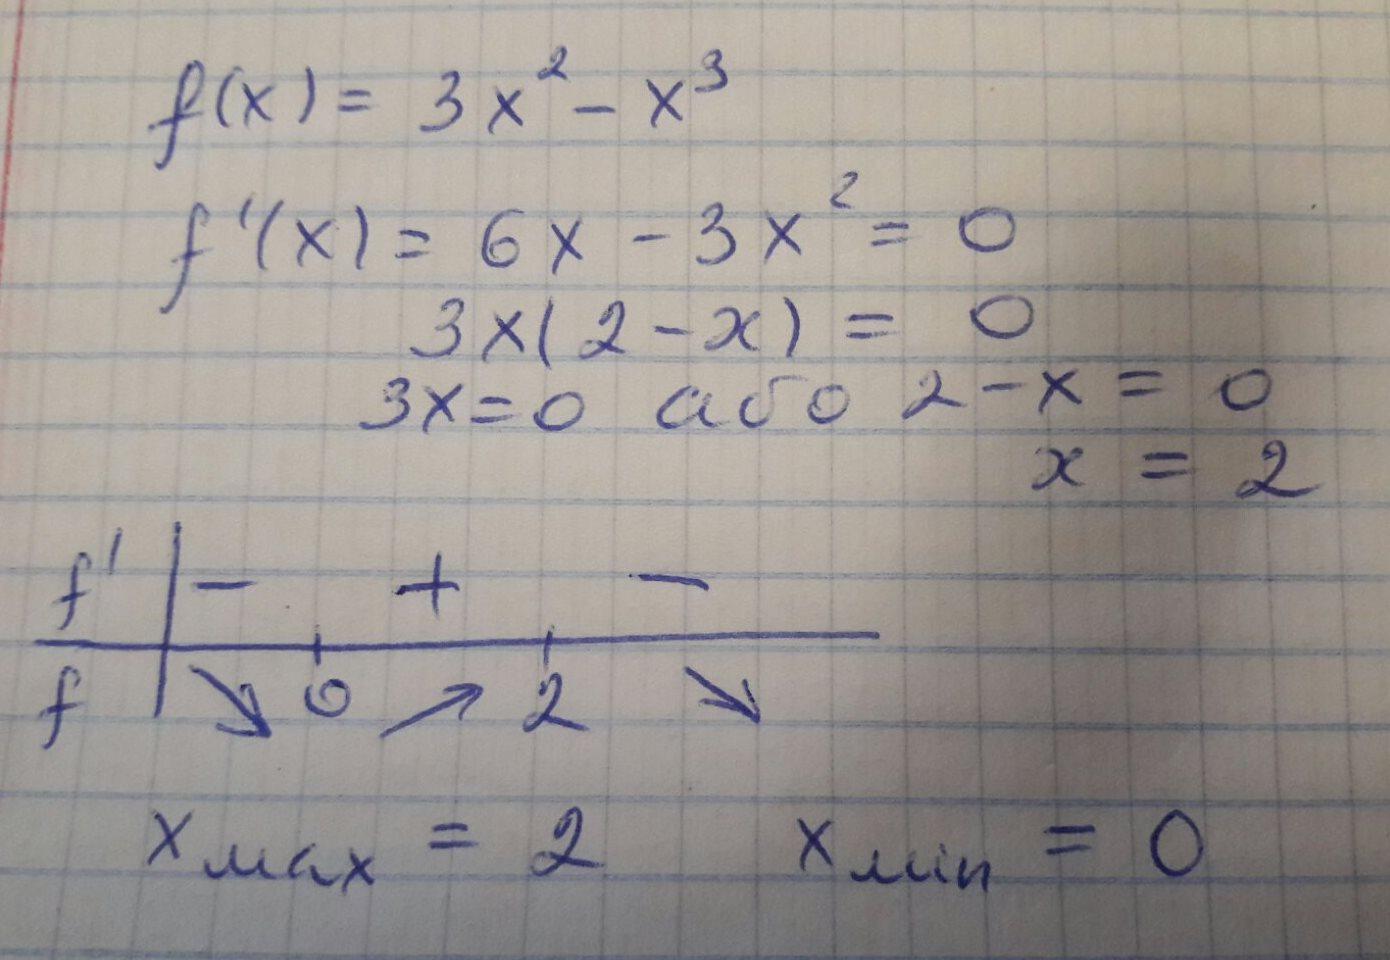 f(x) = 3x² - x³
f'(x) = 6x - 3x² = 0
3x(2 - x) = 0
3x = 0 або 2 - x = 0
x = 2
f' | - + -
f | ↘ 0 ↗ 2 ↘
x мах = 2 x мін = 0